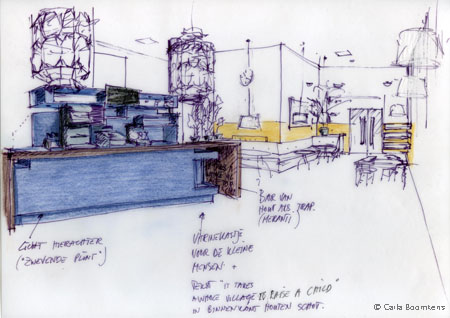 BAR VAN
HOUT ALS TRAP.
(MERANTI)
LICHT HIERACHTER
("ZWEVENDE PLINT")
VITRINEKASTJE
VOOR DE KLEINE
MENSEN +
TEKST "IT TAKES
A WHOLE VILLAGE TO RAISE A CHILD"
IN BINNENKANT HOUTEN SCHOT.
© Carla Boomkens